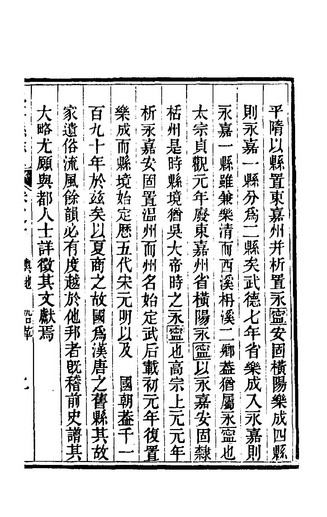 平隋以縣置東嘉州并析置永寧安固橫陽樂成四縣
則永嘉一縣分爲二縣矣武德七年省樂成入永嘉則
永嘉一縣雖兼樂清而西溪枏溪二鄉蓋猶屬永寧也
太宗貞觀元年廢東嘉州省橫陽永寧以永嘉安固隸
栝州是時縣境猶吳大帝時之永寧也高宗上元元年
析永嘉安固置温州而州名始定武后載初元年復置
樂成而縣境始定歷五代宋元明以及 國朝蓋千一
百九十年於茲矣以夏商之故國爲漢唐之舊縣其故
家遺俗流風餘韻必有度越於他邦者旣稽前史譜其
大略尤願與都人士詳徵其文獻焉